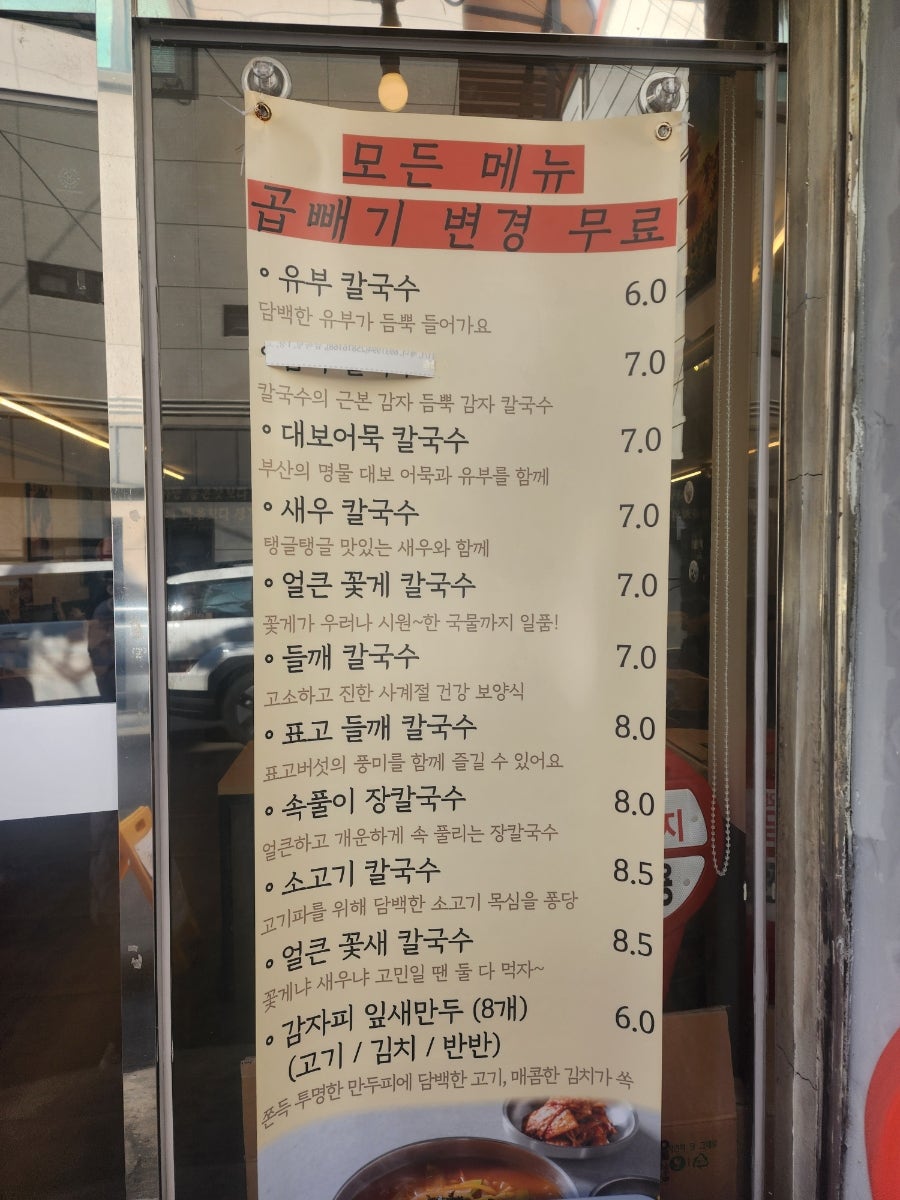 모든 메뉴
곱빼기 변경 무료
유부 칼국수 6.0
담백한 유부가 듬뿍 들어가요
7.0
칼국수의 근본 감자 듬뿍 감자 칼국수
대보어묵 칼국수 7.0
부산의 명물 대보 어묵과 유부를 함께
새우 칼국수 7.0
탱글탱글 맛있는 새우와 함께
얼큰 꽃게 칼국수 7.0
꽃게가 우러나 시원~한 국물까지 일품!
들깨 칼국수 7.0
고소하고 진한 사계절 건강 보양식
표고 들깨 칼국수 8.0
표고버섯의 풍미를 함께 즐길 수 있어요
속풀이 장칼국수 8.0
얼큰하고 개운하게 속 풀리는 장칼국수
소고기 칼국수 8.5
고기파를 위해 담백한 소고기 목심을 퐁당
얼큰 꽃새 칼국수 8.5
꽃게냐 새우냐 고민일 땐 둘 다 먹자~
감자피 잎새만두 (8개) 6.0
(고기 / 김치 / 반반)
쫀득 투명한 만두피에 담백한 고기, 매콤한 김치가 쏙
지